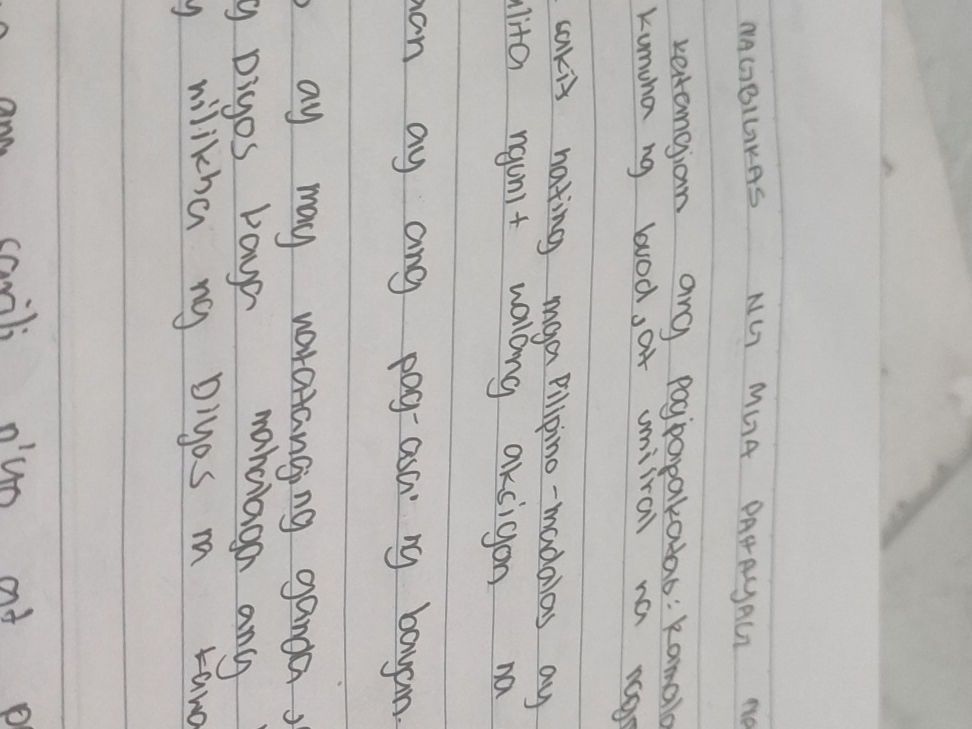 NAGBIGKAS NG MGA PAHAYAG
katangian ang Pagpapakatao: kamalo
kumuha ng buod, at umiiral na nag
sakit nating mga Pilipino - madalas ay
alita ngunit walang aksiyon na
aan ay ang pag-asa ng bayan.
ay may natatanging ganda
g Diyos kaya mahalaga ang
y nilikha ng Diyos na
ang sarili n'yo at p